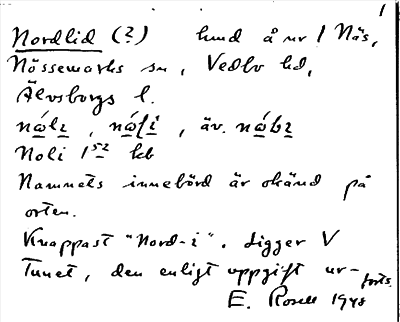 1
Nordlid (2) hmd å nr 1 Näs,
Nössemarks sn, Vedbo hd,
Älvsborgs l.
Noli 1 52 kb
Namnets innebörd är okänd på
orten.
Knappast "Nord-i". Ligger V
Tunet, den enligt uppgift ur-
forts.
E. Rosell 1948